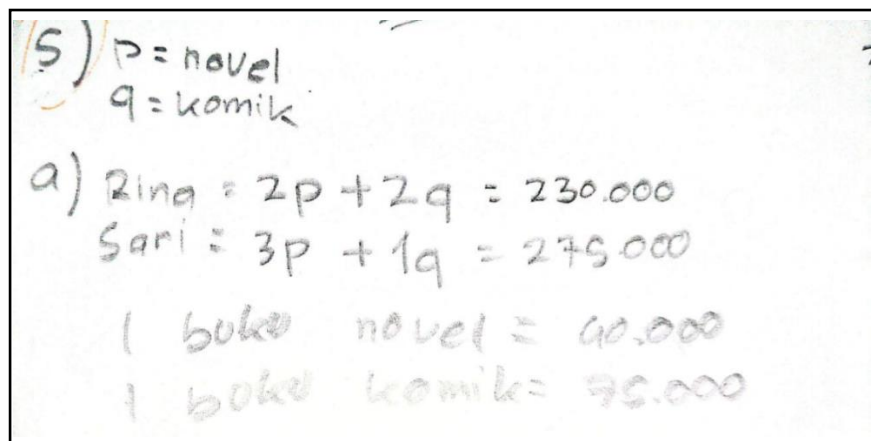 5) p = novel
q = komik
a) Rina = 2p + 2q = 230.000
Sari = 3p + 1q = 275.000
1 buku novel = 40.000
1 buku komik = 75.000